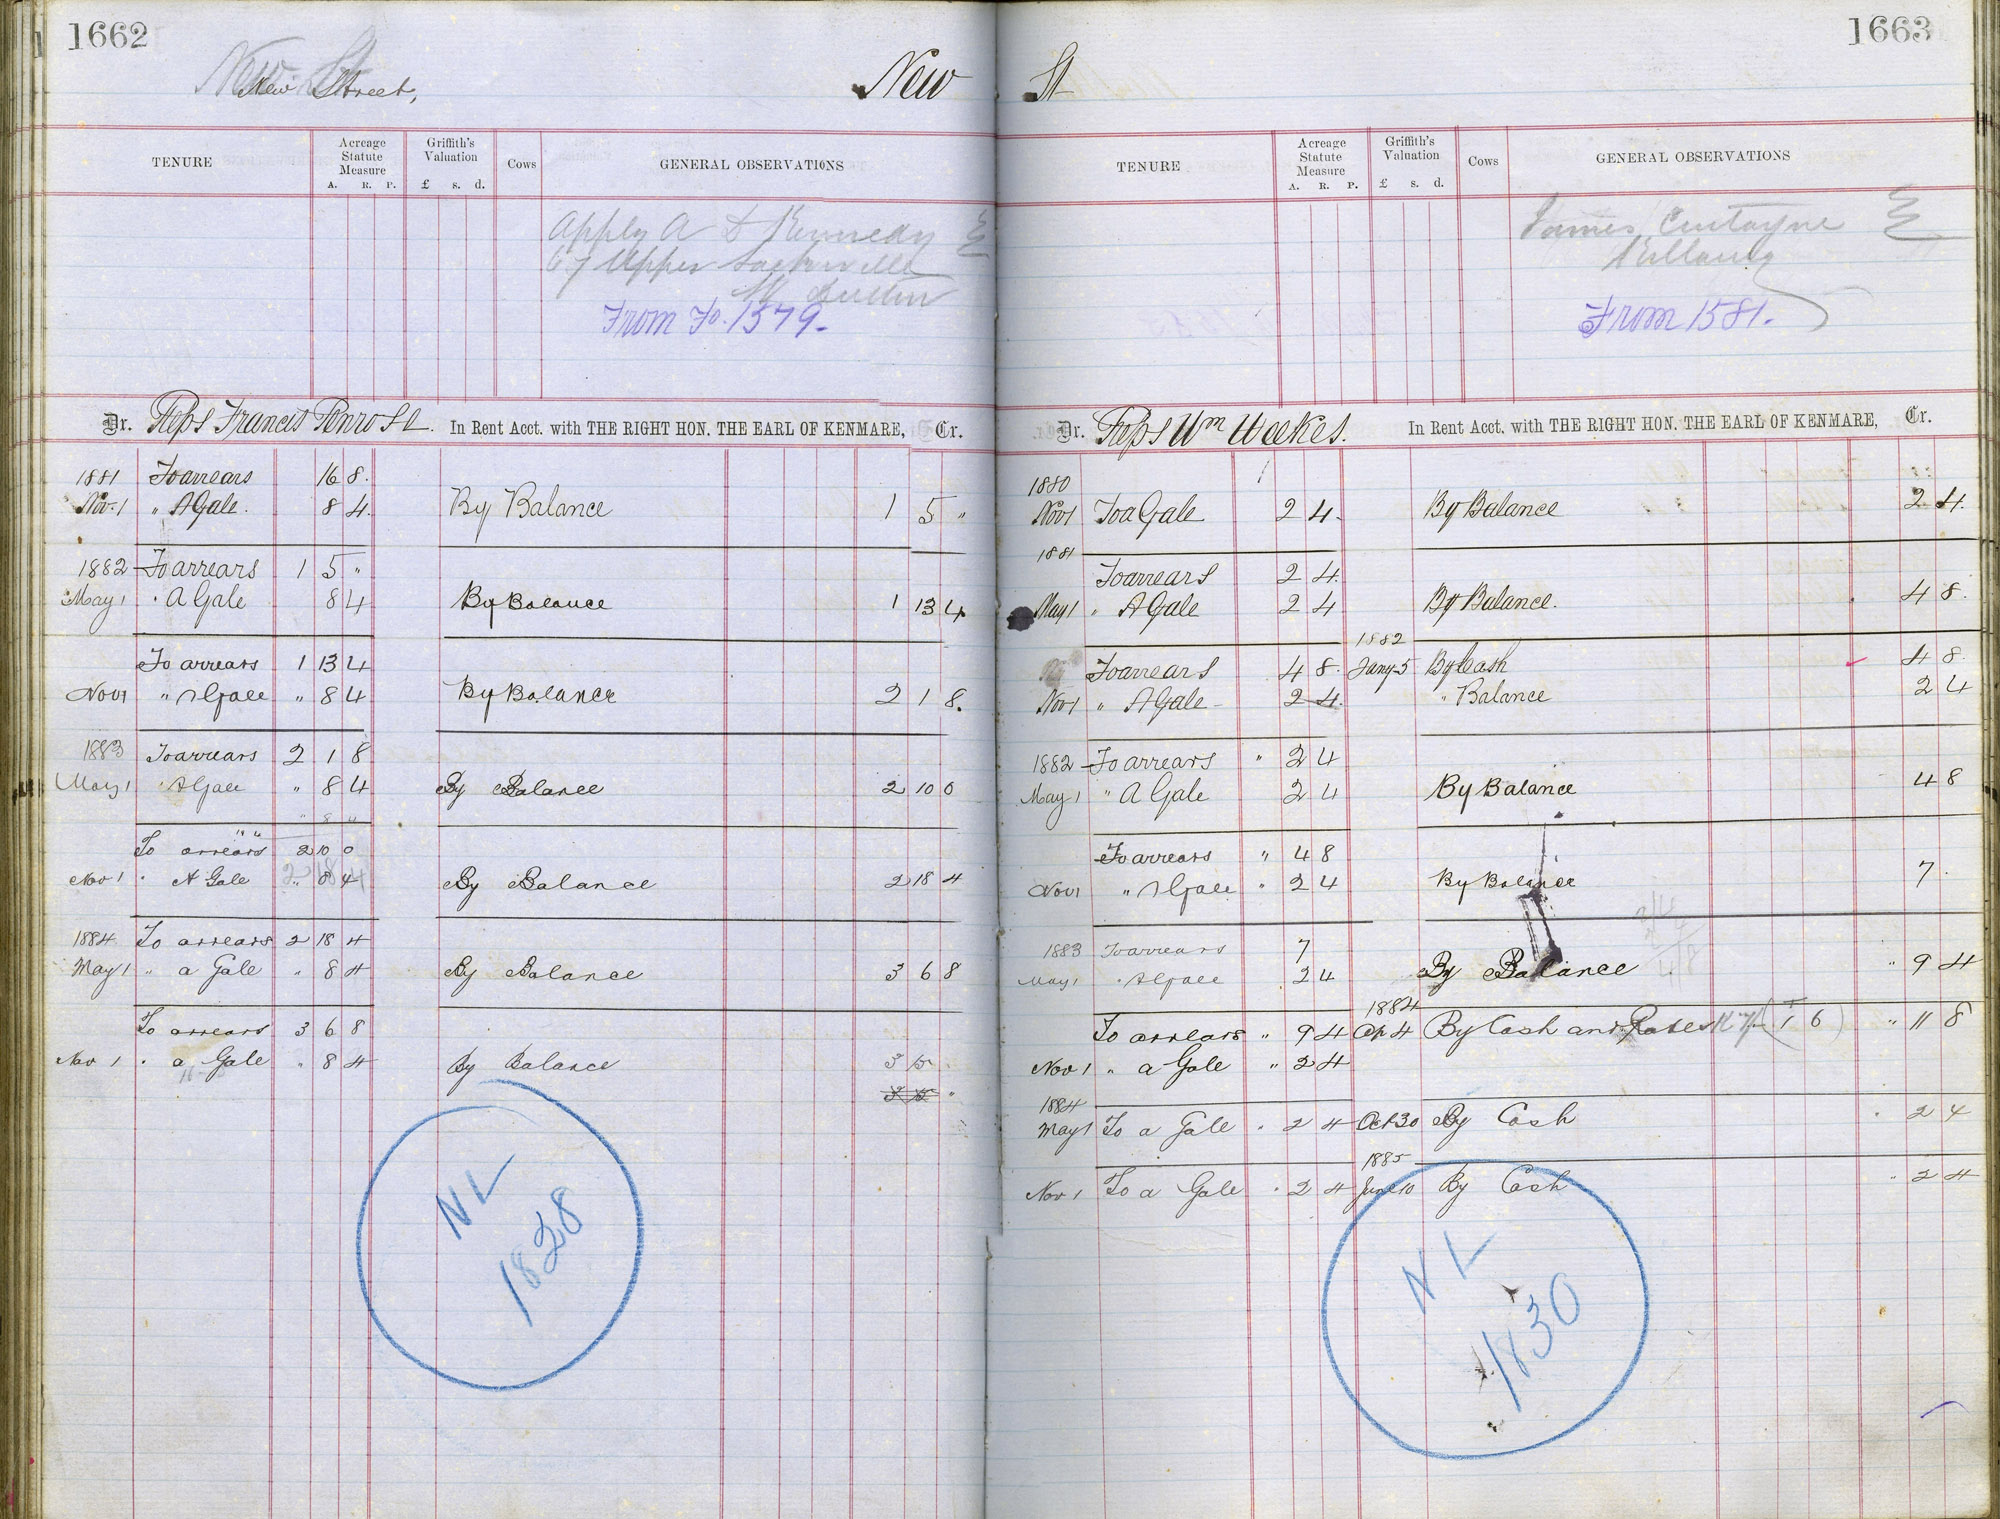 1662
New St
New Street,
New
TENURE
Acreage Statute Measure
A. R. P.
Griffith's Valuation
£ s. d.
Cows
GENERAL OBSERVATIONS
Apply A & Kennedy
67 Upper Sackville
St Dublin
From Fo. 1579.
Dr. Reps Francis Penrose. In Rent Acct. with THE RIGHT HON. THE EARL OF KENMARE, Cr.
1881 To arrears 16 8.
Nov. 1 " A Gale. 8 4. By Balance 1 5 "
1882 To arrears 1 5 "
May 1 " A Gale 8 4 By Balance 1 13 4
To arrears 1 13 4
Nov 1 " A Gale " 8 4 By Balance 2 1 8.
1883 To arrears 2 1 8
May 1 " A Gale " 8 4 By Balance 2 10 0
" 8 4
To arrears 2 10 0
Nov 1 " A Gale " 8 4 By Balance 2 18 4
1884 To arrears 2 18 4
May 1 " a Gale " 8 4 By Balance 3 6 8
To arrears 3 6 8
Nov 1 " a Gale " 8 4 By Balance 3 15 .
3 15 "
NL
1828
1663
St
TENURE
Acreage Statute Measure
A. R. P.
Griffith's Valuation
£ s. d.
Cows
GENERAL OBSERVATIONS
James Curtayne
Killarny
From 1581.
Dr. Reps Wm Weekes. In Rent Acct. with THE RIGHT HON. THE EARL OF KENMARE, Cr.
1880
Nov 1 To a Gale 2 4. By Balance 2 4.
1881
To arrears 2 4.
May 1 " A Gale 2 4 By Balance. 4 8.
1882
To arrears 4 8. Jany 5 By Cash 4 8.
Nov 1 " A Gale 2 4. " Balance 2 4
1882 To arrears " 2 4
May 1 " A Gale 2 4 By Balance 4 8
To arrears " 4 8
Nov 1 " A Gale " 2 4 By Balance 7 .
1883 To arrears 7
May 1 " A Gale 2 4 By Balance " 9 4
1884
To arrears " 9 4 Ap 4 By Cash and Rates (1 6) " 11 8
Nov 1 " a Gale " 2 4
1884
May 1 To a Gale " 2 4 Oct 30 By Cash " 2 4
1885
Nov 1 To a Gale " 2 4 June 10 By Cash " 2 4
NL
1830